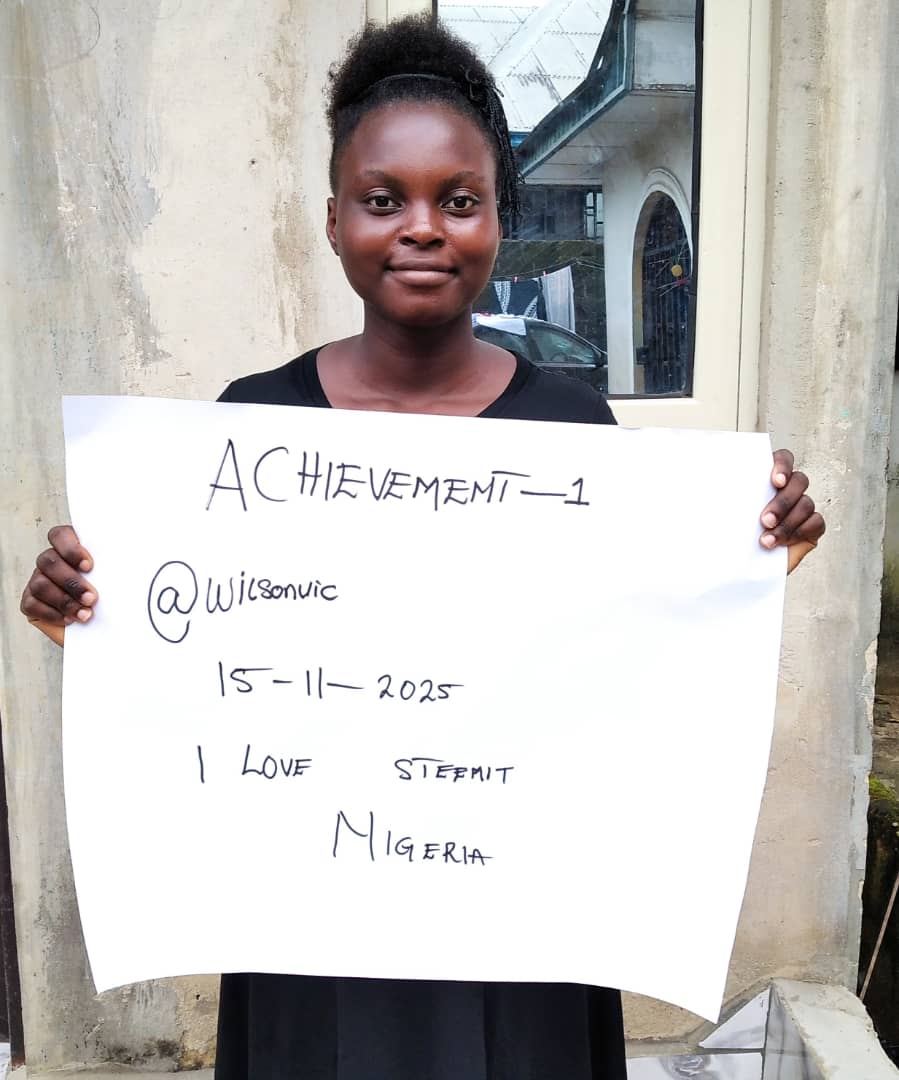 ACHIEVEMENT-1
@wilsonvic
15-11-2025
I LOVE STEEMIT
NIGERIA